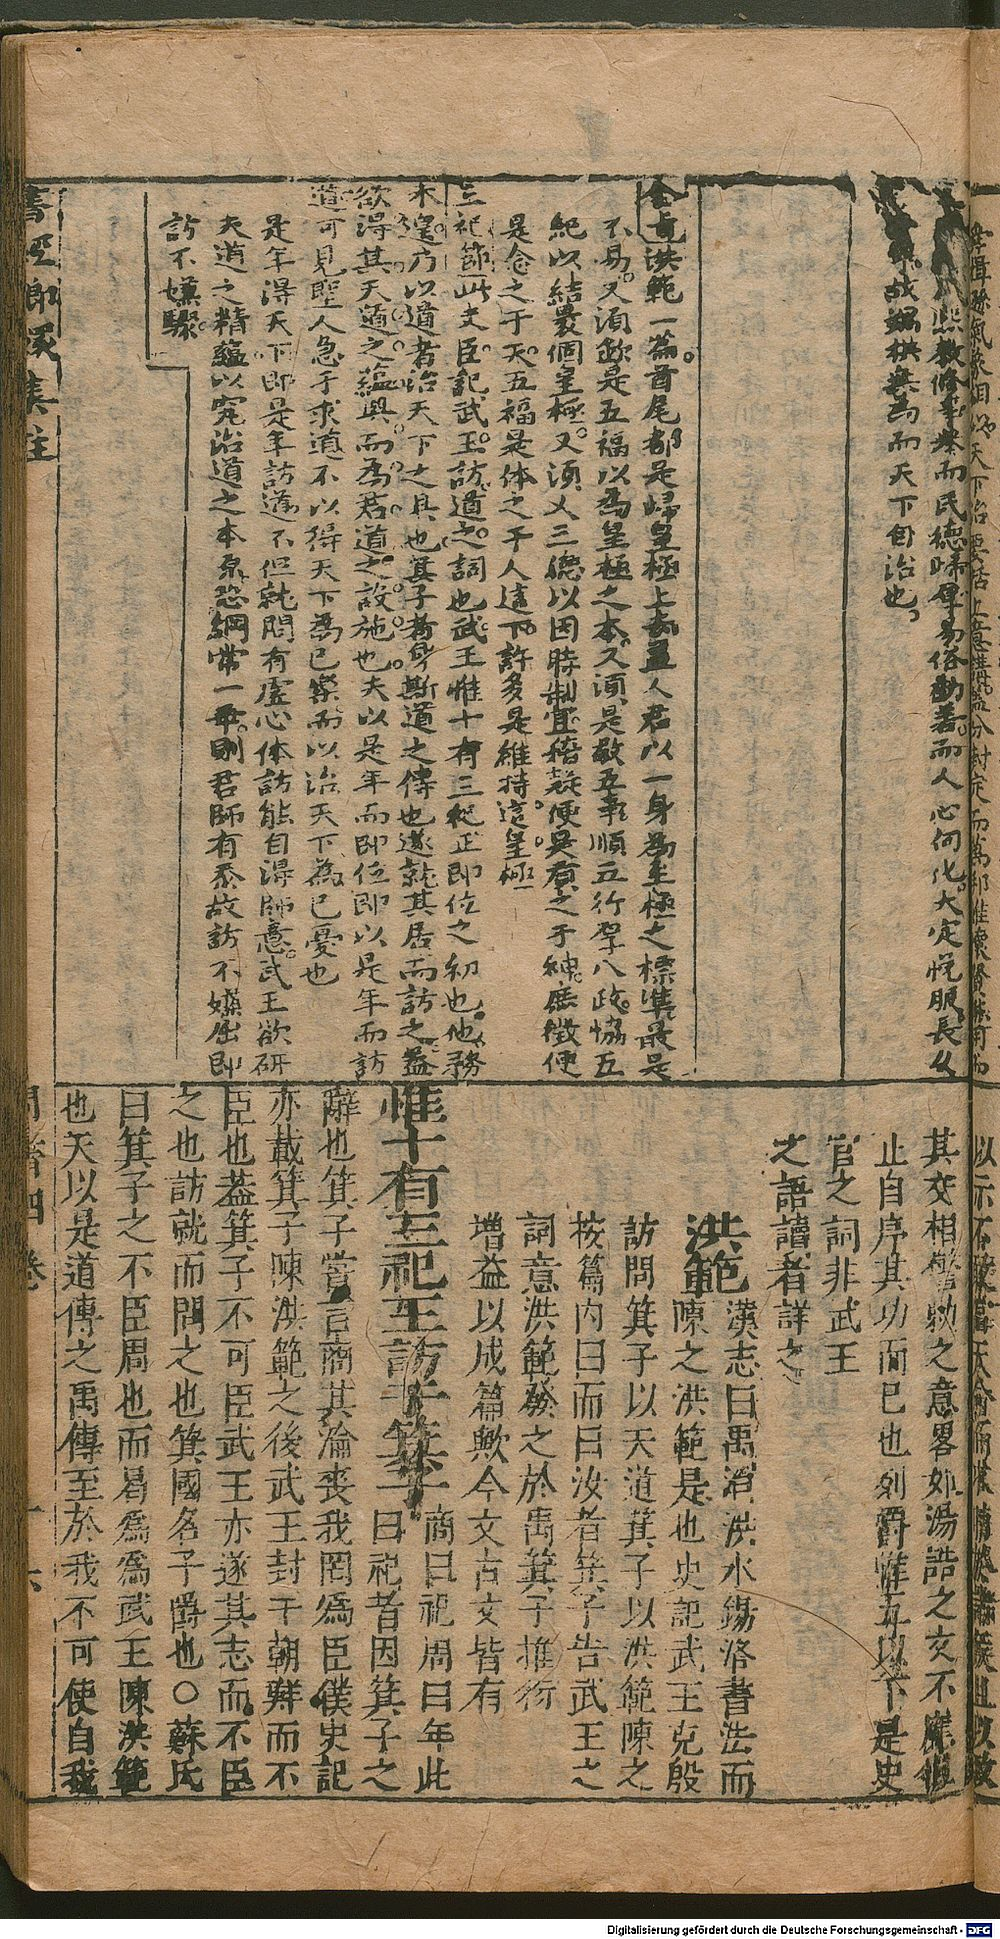 熙教修事舉而民德歸厚易俗勸善而人心向化大定悅服長久
故端拱無為而天下自治也
全旨洪範一篇首尾都是歸皇極上去蓋人君以一身為至極之標準最是
不易又須斂是五福以為皇極之本又須是敬五事順五行厚八政協五
紀以結裹個皇極又須乂三德以因時制宜稽疑便是質之于神庶徵便
是念之于天五福是体之于人這下許多是維持這皇極
三祀節此史臣記武王訪道之詞也武王惟十有三祀正即位之初也他務
未遑乃以道者治天下之具也箕子者身斯道之傳也遂就其居而訪之蓋
欲得其天道之蘊奧而為君道之設施也夫以是年而即位即以是年而訪
道可見聖人急于求道不以得天下為已樂而以治天下為已憂也
是年得天下即是年訪道不但就問有虛心体訪能自得師意武王欲研
夫道之精蘊以究治道之本原恐綱常一乖則君師有忝故訪不嫌屈即
訪不嫌驟
其交相警勅之意畧如湯誥之文不應但
止自序其功而已也列爵惟五以下是史
官之詞非武王
之語讀者詳之
洪範
漢志曰禹治洪水錫洛書法而
陳之洪範是也史記武王克殷
訪問箕子以天道箕子以洪範陳之
按篇內曰而曰汝者箕子告武王之
詞意洪範發之於禹箕子推衍
增益以成篇歟今文古文皆有
惟十有三祀王訪于箕子
商曰祀周曰年此
曰祀者因箕子之
辭也箕子嘗言商其淪喪我罔為臣僕史記
亦載箕子陳洪範之後武王封于朝鮮而不
臣也蓋箕子不可臣武王亦遂其志而不臣
之也訪就而問之也箕國名子爵也○蘇氏
曰箕子之不臣周也而曷為為武王陳洪範
也天以是道傳之禹傳至於我不可使自我
書經集註
Digitalisierung gefördert durch die Deutsche Forschungsgemeinschaft - DFG